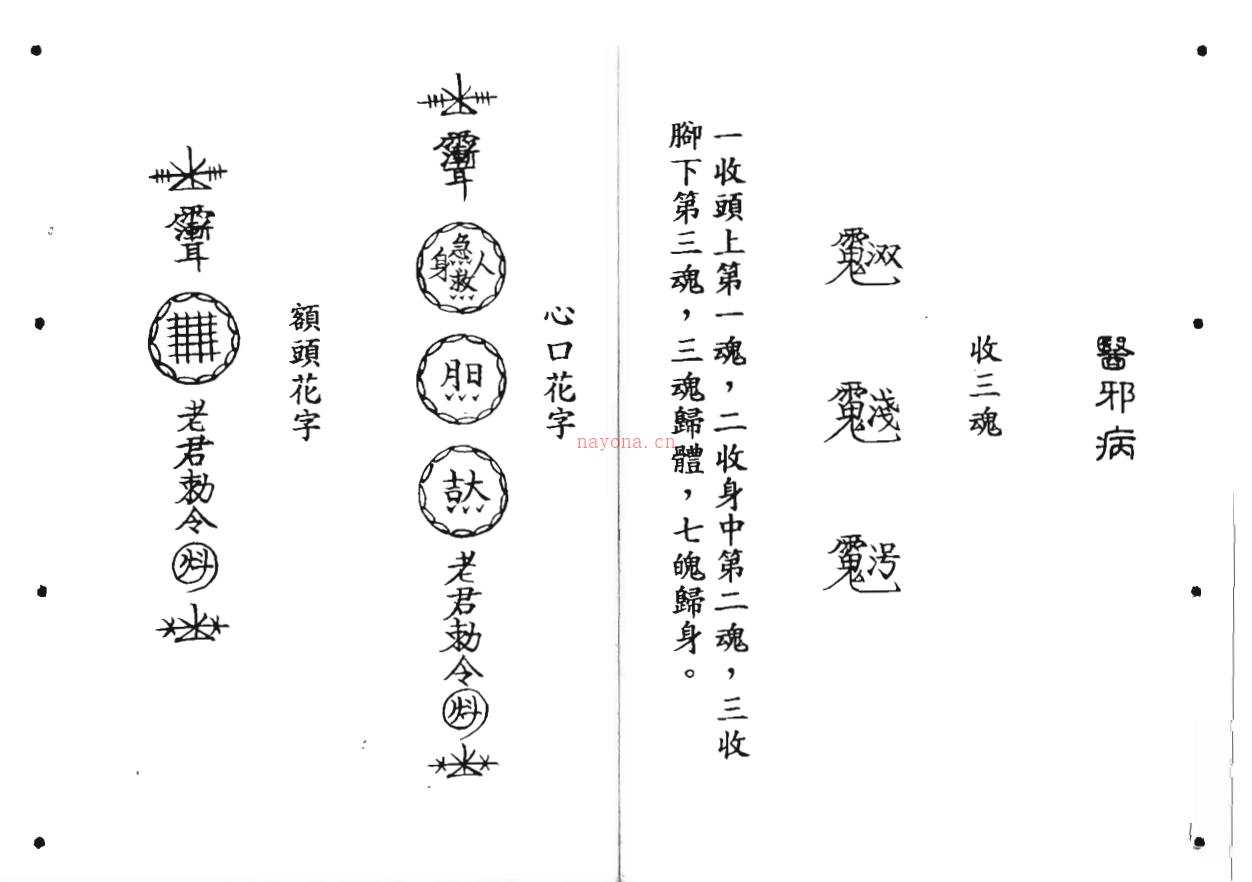 醫邪病
收三魂
一收頭上第一魂，二收身中第二魂，三收
腳下第三魂，三魂歸體，七魄歸身。
心口花字
急救
人
身
老君勅令
額頭花字
老君勅令
nayona.cn